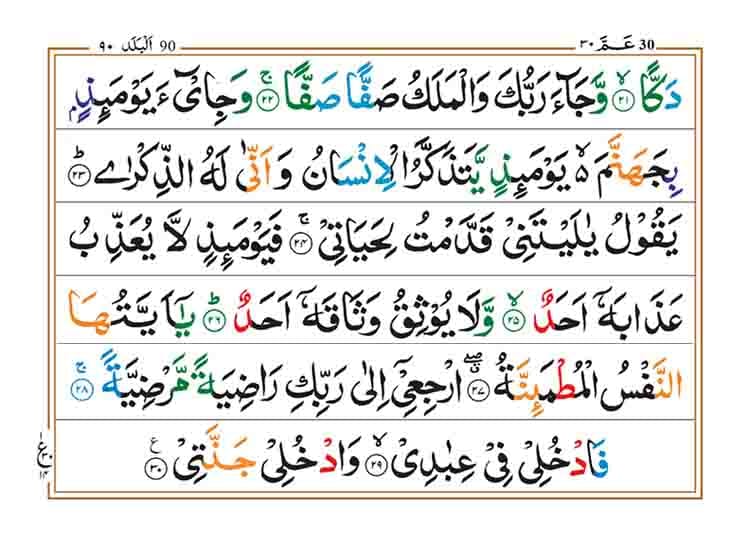 30 عَمَّ ٣٠ اَلْبَلَد 90 ٩٠
دَكًّا ۙ‏﴿۲۱﴾ وَّجَآءَ رَبُّكَ وَالْمَلَكُ صَفًّا صَفًّا ۚ‏﴿۲۲﴾ وَجِایْٓءَ يَوْمَئِذٍۭ
بِجَهَنَّمَ ۙ يَوْمَئِذٍ يَّتَذَكَّرُ الْاِنْسَانُ وَاَنّٰى لَهُ الذِّكْرٰى ؕ‏﴿۲۳﴾
يَقُوْلُ يٰلَيْتَنِىْ قَدَّمْتُ لِحَيَاتِىْ‌ ۚ‏﴿۲۴﴾ فَيَوْمَئِذٍ لَّا يُعَذِّبُ
عَذَابَهٗۤ اَحَدٌ ۙ‏﴿۲۵﴾ وَّلَا يُوْثِقُ وَثَاقَهٗۤ اَحَدٌ ؕ‏﴿۲۶﴾ يٰۤاَيَّتُهَا
النَّفْسُ الْمُطْمَئِنَّةُ ۖ‏﴿۲۷﴾ ارْجِعِىْۤ اِلٰى رَبِّكِ رَاضِيَةً مَّرْضِيَّةً‌ ۚ‏﴿۲۸﴾
فَادْخُلِىْ فِىْ عِبٰدِىْ ۙ‏﴿۲۹﴾ وَادْخُلِىْ جَنَّتِىْ ‏﴿۳۰﴾
ع ١ ٣٠ ١٤